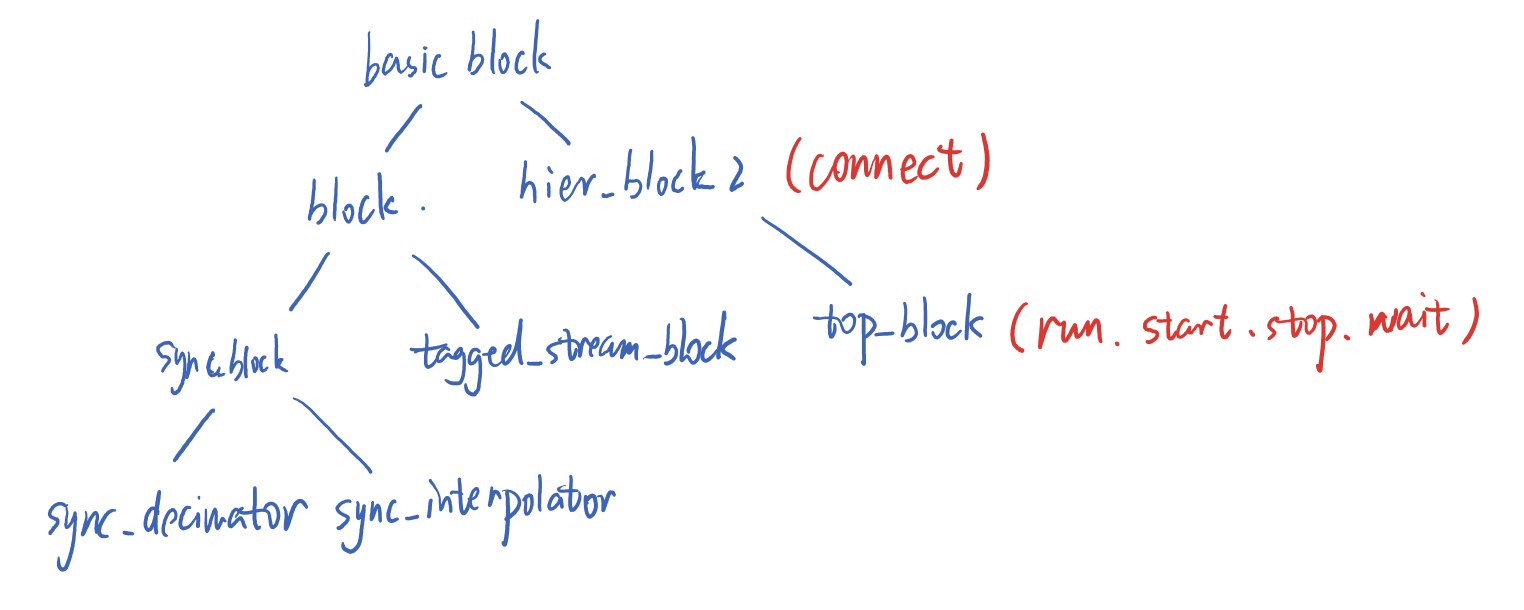 basic block
block. hier_block2 (connect)
sync_block tagged_stream_block top_block (run. start. stop. wait)
sync_decimator sync_interpolator